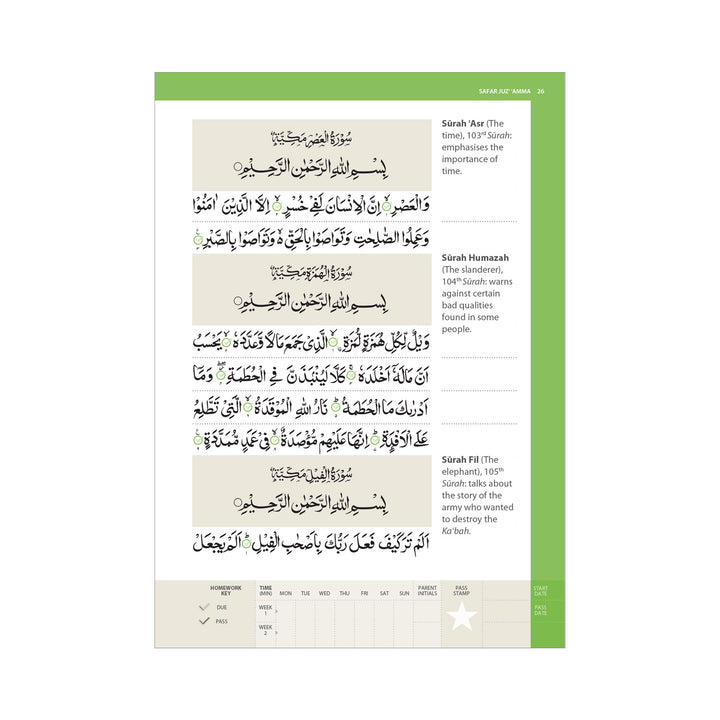 SAFAR JUZ' 'AMMA 26
سُوْرَةُ الْعَصْرِ مَكِّيَّةٌ
بِسْمِ اللهِ الرَّحْمٰنِ الرَّحِيْمِ
وَالْعَصْرِ ۙ۝ اِنَّ الْاِنْسَانَ لَفِيْ خُسْرٍ ۙ۝ اِلَّا الَّذِيْنَ اٰمَنُوْا
وَعَمِلُوا الصّٰلِحٰتِ وَتَوَاصَوْا بِالْحَقِّ ۙ وَتَوَاصَوْا بِالصَّبْرِ ۝
Sūrah 'Asr (The
time), 103rd Sūrah:
emphasises the
importance of
time.
سُوْرَةُ الْهُمَزَةِ مَكِّيَّةٌ
بِسْمِ اللهِ الرَّحْمٰنِ الرَّحِيْمِ
وَيْلٌ لِّكُلِّ هُمَزَةٍ لُّمَزَةِ ۙ۝ الَّذِيْ جَمَعَ مَالًا وَّعَدَّدَهٗ ۙ۝ يَحْسَبُ
اَنَّ مَالَهٗٓ اَخْلَدَهٗ ۚ۝ كَلَّا لَيُنْۢبَذَنَّ فِي الْحُطَمَةِ ۖ۝ وَمَآ
اَدْرٰىكَ مَا الْحُطَمَةُ ؕ۝ نَارُ اللهِ الْمُوْقَدَةُ ۙ۝ الَّتِيْ تَطَّلِعُ
عَلَى الْاَفْـِٕدَةِ ؕ۝ اِنَّهَا عَلَيْهِمْ مُّؤْصَدَةٌ ۙ۝ فِيْ عَمَدٍ مُّمَدَّدَةٍ ۝
Sūrah Humazah
(The slanderer),
104th Sūrah: warns
against certain
bad qualities
found in some
people.
سُوْرَةُ الْفِيْلِ مَكِّيَّةٌ
بِسْمِ اللهِ الرَّحْمٰنِ الرَّحِيْمِ
اَلَمْ تَرَ كَيْفَ فَعَلَ رَبُّكَ بِاَصْحٰبِ الْفِيْلِ ؕ۝ اَلَمْ يَجْعَلْ
Sūrah Fil (The
elephant), 105th
Sūrah: talks about
the story of the
army who wanted
to destroy the
Ka'bah.
HOMEWORK KEY
DUE
PASS
TIME (MIN) MON TUE WED THU FRI SAT SUN PARENT INITIALS PASS STAMP
WEEK 1
WEEK 2
START DATE
PASS DATE